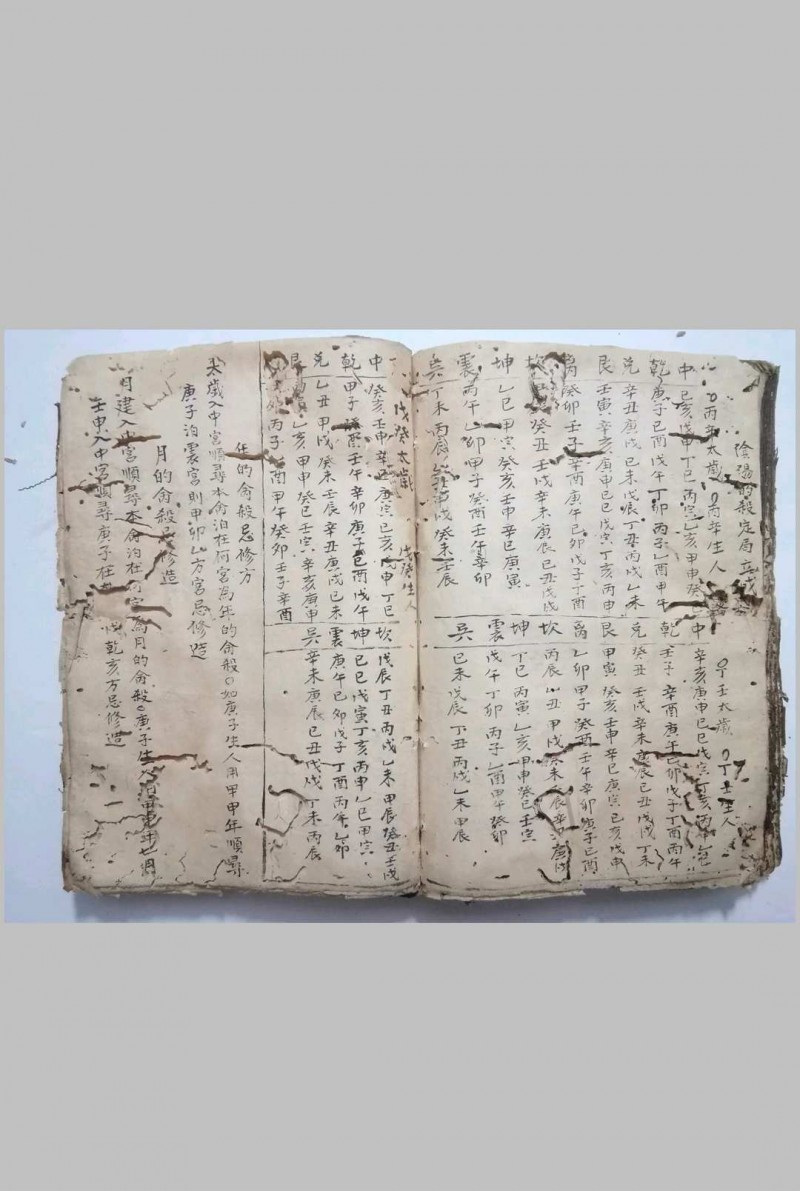 陰陽的殺定局立成
丙年太歲 丙年生人 丁壬太歲 丁壬生人
中 己亥戊申丁巳丙寅乙亥甲申癸巳 中 辛亥庚申己巳戊寅丁亥丙申
乾 庚子己酉戊午丁卯丙子乙酉甲午 乾 壬子辛酉庚午己卯戊子丁酉丙午
兌 辛丑庚戌己未戊辰丁丑丙戌乙未 兌 癸丑壬戌辛未庚辰己丑戊戌丁未
艮 壬寅辛亥庚申己巳戊寅丁亥丙申 艮 甲寅癸亥壬申辛巳庚寅己亥戊申
离 癸卯壬子辛酉庚午己卯戊子丁酉 离 乙卯甲子癸酉壬午辛卯庚子己酉
坎 癸丑壬戌辛未庚辰己丑戊戌 坎 丙辰乙丑甲戌癸未辰辛丑庚戌
坤 乙巳甲寅癸亥壬申辛巳庚寅 坤 丁巳丙寅乙亥甲申癸巳壬寅
震 丙午乙卯甲子癸酉壬午辛卯 震 戊午丁卯丙子乙酉甲午癸卯
巽 丁未丙辰乙丑甲戌癸未壬辰 巽 己未戊辰丁丑丙戌乙未甲辰
戊癸太歲 戊癸生人
中 癸亥壬申辛巳庚寅己亥戊申丁巳 坎 戊辰丁丑丙戌乙未甲辰癸丑壬戌
乾 甲子癸酉壬午辛卯庚子己酉戊午 坤 己巳戊寅丁亥丙申乙巳甲寅
兌 乙丑甲戌癸未壬辰辛丑庚戌己未 震 庚午己卯戊子丁酉丙午乙卯
艮 乙亥甲申癸巳壬寅辛亥庚申 巽 辛未庚辰己丑戊戌丁未丙辰
丙子乙酉甲午癸卯壬子辛酉
年的命殺忌修方
太歲入中宮順尋本命泊在何宮為年的命殺如庚子生人用甲申年順尋
庚子泊震宮則甲卯乙方宮忌修造
月的命殺忌修造
月建入中宮順尋本命泊在何宮為月的命殺庚子生人
壬申入中宮順尋庚子在 戌乾亥方忌修造